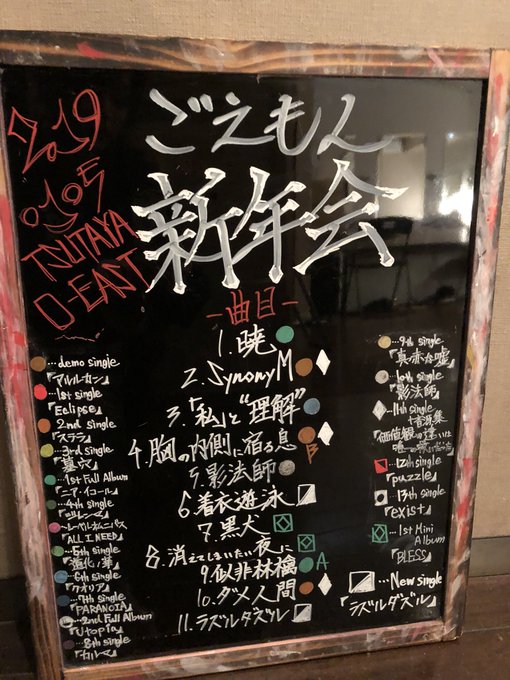 2019
0105
TSUTAYA
O-EAST
ごえもん
新年会
-曲目-
1.暁
2.SynonyM
3.「私」と"理解"
4.胸の内側に宿る息
B
5.影法師
6.着衣遊泳
7.黒犬
8.消えてしまいたい夜に
9.似非林檎
A
10.ダメ人間
11.ラズルダズル
…demo single
『マルル・カン』
…1st single
『Eclipse』
…2nd single
『スララ』
…3rd single
『墓穴』
…1st Full Album
『ニア・イコール』
…4th single
…レーベルオムニバス
『ALL I NEED』
…5th single
『造化ノ華』
…6th single
『ケオリア』
…7th single
『PARANOIA』
…2nd Full Album
『Utopia』
…8th single
『カルマ』
…9th single
『真っ赤な嘘』
…10th single
『影法師』
…11th single
+音源集
『価値観の違いは
…12th single
『puzzle』
…13th single
『exist』
…1st Mini
Album
『BLESS』
…New single
『ラズルダズル』